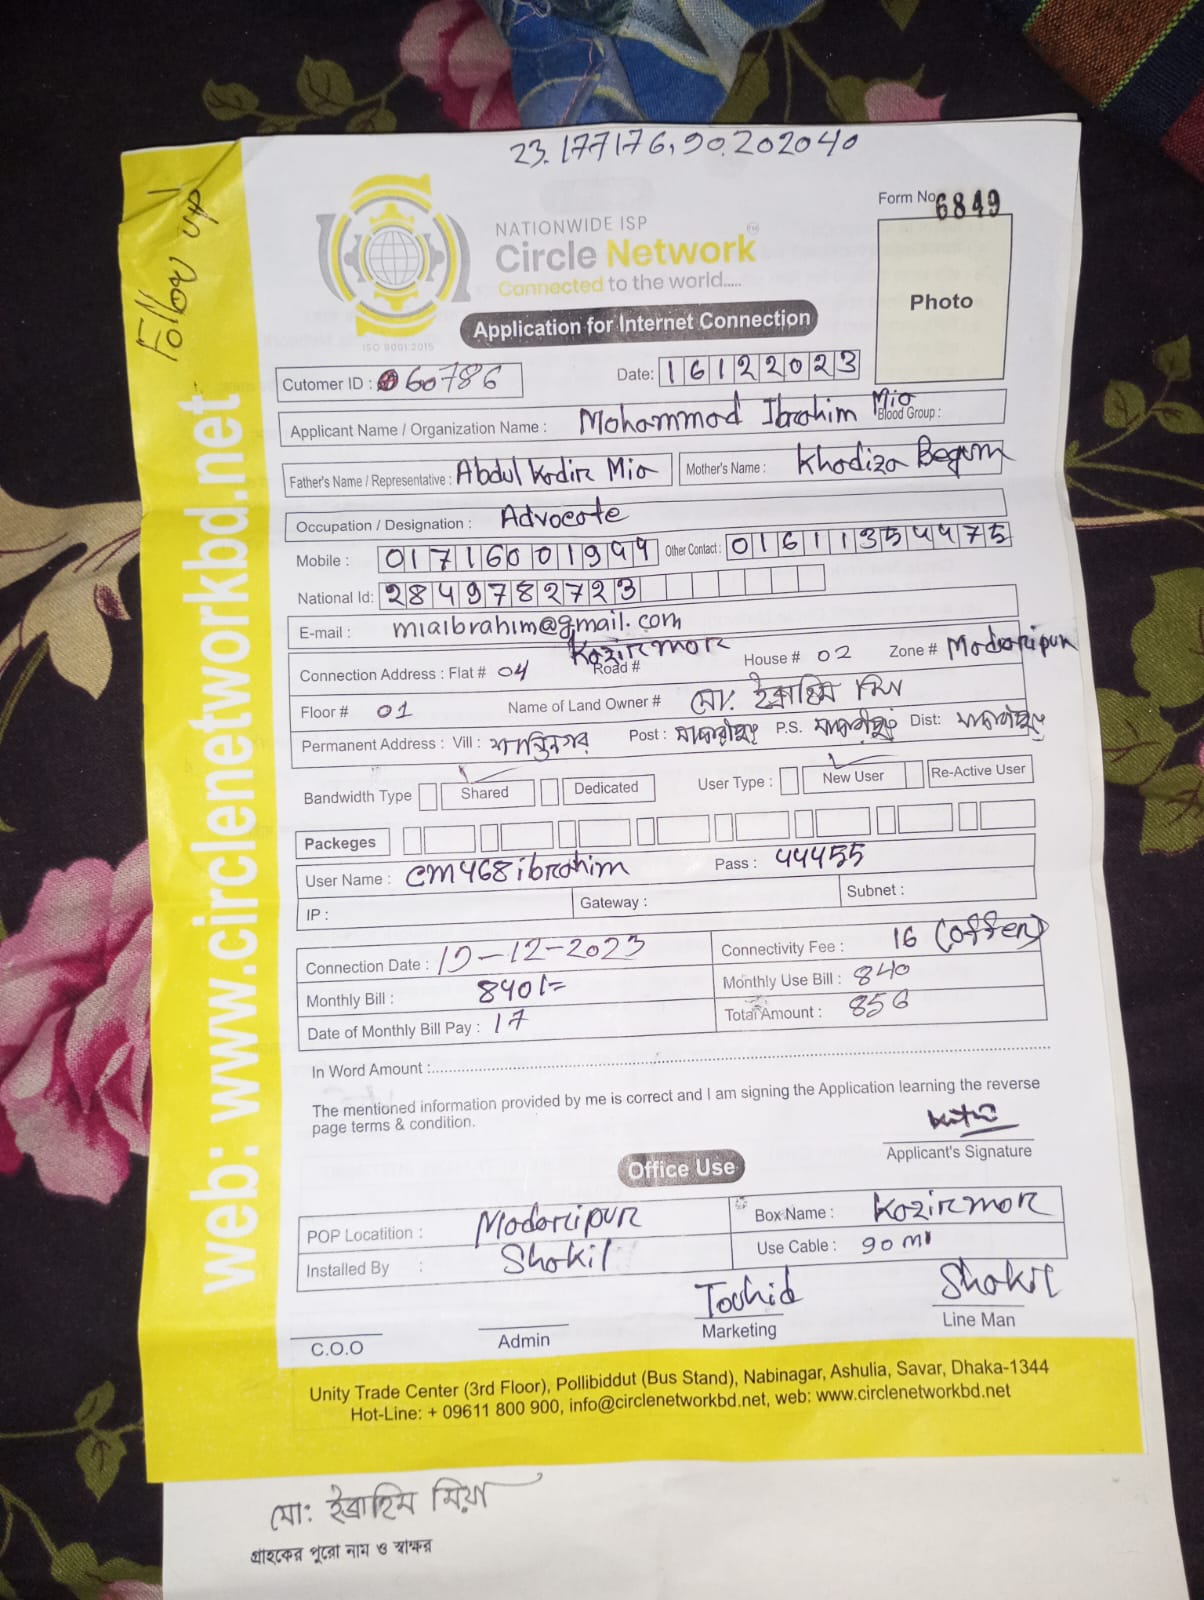 23.177176,90.202040
Follow up
Form No. 6849
NATIONWIDE ISP
Circle Network
Connected to the world.....
ISO 9001:2015
Photo
Application for Internet Connection
Cutomer ID : 60786 Date: 16122023
Applicant Name / Organization Name : Mohammad Ibrahim Mia Blood Group :
Father's Name / Representative : Abdul Kadir Mia Mother's Name : Khadiza Begum
Occupation / Designation : Advocate
Mobile : 01716001999 Other Contact : 01611354475
National Id: 2849782723
E-mail : miaibrahim@gmail.com
Connection Address : Flat # 04 Kazirmor Road # House # 02 Zone # Madaripur
Floor # 01 Name of Land Owner # মো. ইব্রাহিম মিয়া
Permanent Address : Vill : শান্তিনগর Post : মাদারীপুর P.S. মাদারীপুর Dist: মাদারীপুর
Bandwidth Type Shared Dedicated User Type : New User Re-Active User
Packeges
User Name : cm468ibrahim Pass : 44455
IP : Gateway : Subnet :
Connection Date : 17-12-2023 Connectivity Fee : 16 (offer)
Monthly Bill : 840/= Monthly Use Bill : 840
Date of Monthly Bill Pay : 17 Total Amount : 856
In Word Amount :
The mentioned information provided by me is correct and I am signing the Application learning the reverse
page terms & condition.
Applicant's Signature
Office Use
POP Locatition : Madaripur Box Name : Kazirmor
Installed By : Shakil Use Cable : 90 m
Touhid Shakil
C.O.O Admin Marketing Line Man
Unity Trade Center (3rd Floor), Pollibiddut (Bus Stand), Nabinagar, Ashulia, Savar, Dhaka-1344
Hot-Line: + 09611 800 900, info@circlenetworkbd.net, web: www.circlenetworkbd.net
web: www.circlenetworkbd.net
মো: ইব্রাহিম মিয়া
গ্রাহকের পুরো নাম ও স্বাক্ষর